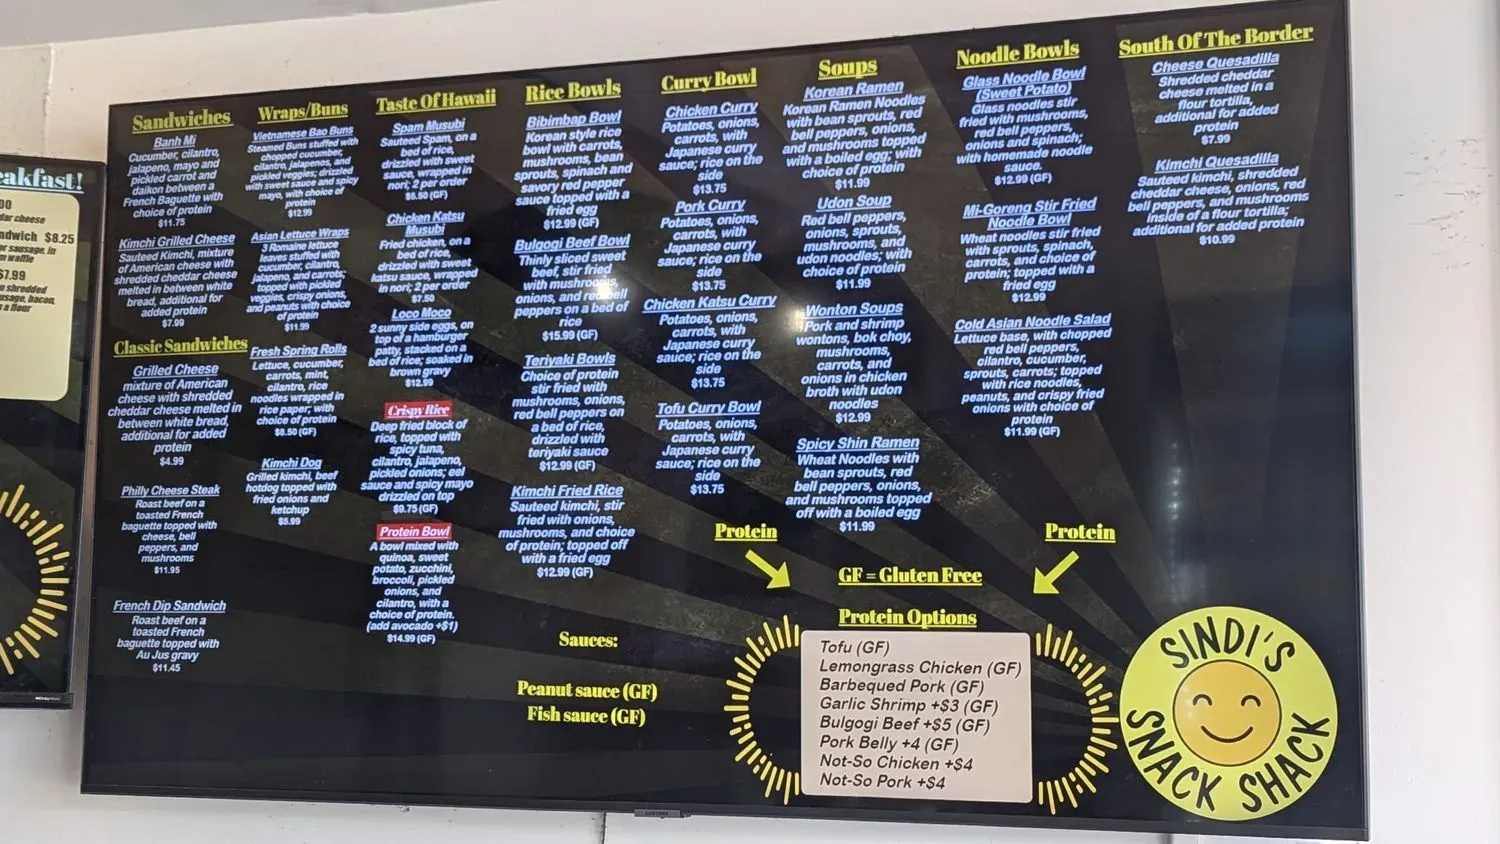 eakfast!
00
dar cheese
ndwich $8.25
ar sausage, in
m waffle
$7.99
n shredded
usage, bacon,
n a flour
Sandwiches
Banh Mi
Cucumber, cilantro,
jalapeno, mayo and
pickled carrot and
daikon between a
French Baguette with
choice of protein
$11.75
Kimchi Grilled Cheese
Sauteed Kimchi, mixture
of American cheese with
shredded cheddar cheese
melted in between white
bread, additional for
added protein
$7.99
Classic Sandwiches
Grilled Cheese
mixture of American
cheese with shredded
cheddar cheese melted in
between white bread,
additional for added
protein
$4.99
Philly Cheese Steak
Roast beef on a
toasted French
baguette topped with
cheese, bell
peppers, and
mushrooms
$11.95
French Dip Sandwich
Roast beef on a
toasted French
baguette topped with
Au Jus gravy
$11.45
Wraps/Buns
Vietnamese Bao Buns
Steamed Buns stuffed with
chopped cucumber,
cilantro, jalapenos, and
pickled veggies; drizzled
with sweet sauce and spicy
mayo, with choice of
protein
$12.99
Asian Lettuce Wraps
3 Romaine lettuce
leaves stuffed with
cucumber, cilantro,
jalapeno, and carrots;
topped with pickled
veggies, crispy onions,
and peanuts with choice
of protein
$11.99
Fresh Spring Rolls
Lettuce, cucumber,
carrots, mint,
cilantro, rice
noodles wrapped in
rice paper; with
choice of protein
$8.50 (GF)
Kimchi Dog
Grilled kimchi, beef
hotdog topped with
fried onions and
ketchup
$5.99
Taste Of Hawaii
Spam Musubi
Sauteed Spam, on a
bed of rice,
drizzled with sweet
sauce, wrapped in
nori; 2 per order
$6.50 (GF)
Chicken Katsu
Musubi
Fried chicken, on a
bed of rice,
drizzled with sweet
katsu sauce, wrapped
in nori; 2 per order
$7.50
Loco Moco
2 sunny side eggs, on
top of a hamburger
patty, stacked on a
bed of rice; soaked in
brown gravy
$12.99
Crispy Rice
Deep fried block of
rice, topped with
spicy tuna,
cilantro, jalapeno,
pickled onions; eel
sauce and spicy mayo
drizzled on top
$9.75 (GF)
Protein Bowl
A bowl mixed with
quinoa, sweet
potato, zucchini,
broccoli, pickled
onions, and
cilantro, with a
choice of protein.
(add avocado +$1)
$14.99 (GF)
Rice Bowls
Bibimbap Bowl
Korean style rice
bowl with carrots,
mushrooms, bean
sprouts, spinach and
savory red pepper
sauce topped with a
fried egg
$12.99 (GF)
Bulgogi Beef Bowl
Thinly sliced sweet
beef, stir fried
with mushrooms,
onions, and red bell
peppers on a bed of
rice
$15.99 (GF)
Teriyaki Bowls
Choice of protein
stir fried with
mushrooms, onions,
red bell peppers on
a bed of rice,
drizzled with
teriyaki sauce
$12.99 (GF)
Kimchi Fried Rice
Sauteed kimchi, stir
fried with onions,
mushrooms, and choice
of protein; topped off
with a fried egg
$12.99 (GF)
Sauces:
Peanut sauce (GF)
Fish sauce (GF)
Curry Bowl
Chicken Curry
Potatoes, onions,
carrots, with
Japanese curry
sauce; rice on the
side
$13.75
Pork Curry
Potatoes, onions,
carrots, with
Japanese curry
sauce; rice on the
side
$13.75
Chicken Katsu Curry
Potatoes, onions,
carrots, with
Japanese curry
sauce; rice on the
side
$13.75
Tofu Curry Bowl
Potatoes, onions,
carrots, with
Japanese curry
sauce; rice on the
side
$13.75
Soups
Korean Ramen
Korean Ramen Noodles
with bean sprouts, red
bell peppers, onions,
and mushrooms topped
with a boiled egg; with
choice of protein
$11.99
Udon Soup
Red bell peppers,
onions, sprouts,
mushrooms, and
udon noodles; with
choice of protein
$11.99
Wonton Soups
Pork and shrimp
wontons, bok choy,
mushrooms,
carrots, and
onions in chicken
broth with udon
noodles
$12.99
Spicy Shin Ramen
Wheat Noodles with
bean sprouts, red
bell peppers, onions,
and mushrooms topped
off with a boiled egg
$11.99
Noodle Bowls
Glass Noodle Bowl
(Sweet Potato)
Glass noodles stir
fried with mushrooms,
red bell peppers,
onions and spinach;
with homemade noodle
sauce
$12.99 (GF)
Mi-Goreng Stir Fried
Noodle Bowl
Wheat noodles stir fried
with sprouts, spinach,
carrots, and choice of
protein; topped with a
fried egg
$12.99
Cold Asian Noodle Salad
Lettuce base, with chopped
red bell peppers,
cilantro, cucumber,
sprouts, carrots; topped
with rice noodles,
peanuts, and crispy fried
onions with choice of
protein
$11.99 (GF)
South Of The Border
Cheese Quesadilla
Shredded cheddar
cheese melted in a
flour tortilla,
additional for added
protein
$7.99
Kimchi Quesadilla
Sauteed kimchi, shredded
cheddar cheese, onions, red
bell peppers, and mushrooms
inside of a flour tortilla;
additional for added protein
$10.99
Protein
Protein
GF = Gluten Free
Protein Options
Tofu (GF)
Lemongrass Chicken (GF)
Barbequed Pork (GF)
Garlic Shrimp +$3 (GF)
Bulgogi Beef +$5 (GF)
Pork Belly +4 (GF)
Not-So Chicken +$4
Not-So Pork +$4
SINDI'S
SNACK SHACK
SAMSUNG